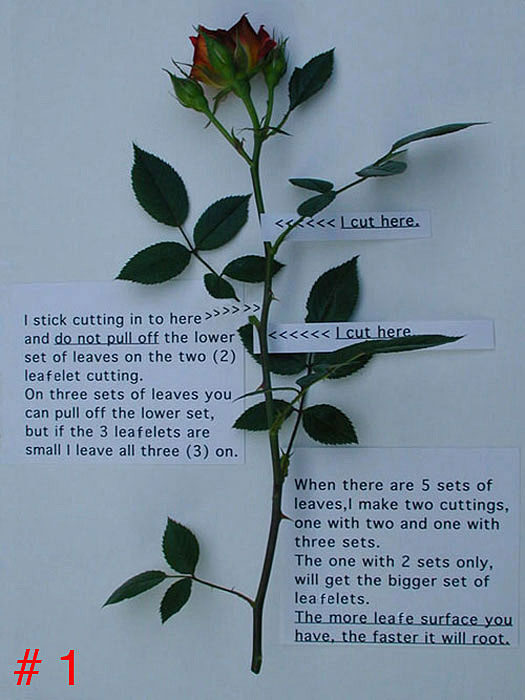 <<<<<< I cut here.
I stick cutting in to here >>>>>>
and do not pull off the lower
set of leaves on the two (2)
leafelet cutting.
On three sets of leaves you
can pull off the lower set,
but if the 3 leafelets are
small I leave all three (3) on.
<<<<<< I cut here.
When there are 5 sets of
leaves,I make two cuttings,
one with two and one with
three sets.
The one with 2 sets only,
will get the bigger set of
leafelets.
The more leafe surface you
have, the faster it will root.
# 1